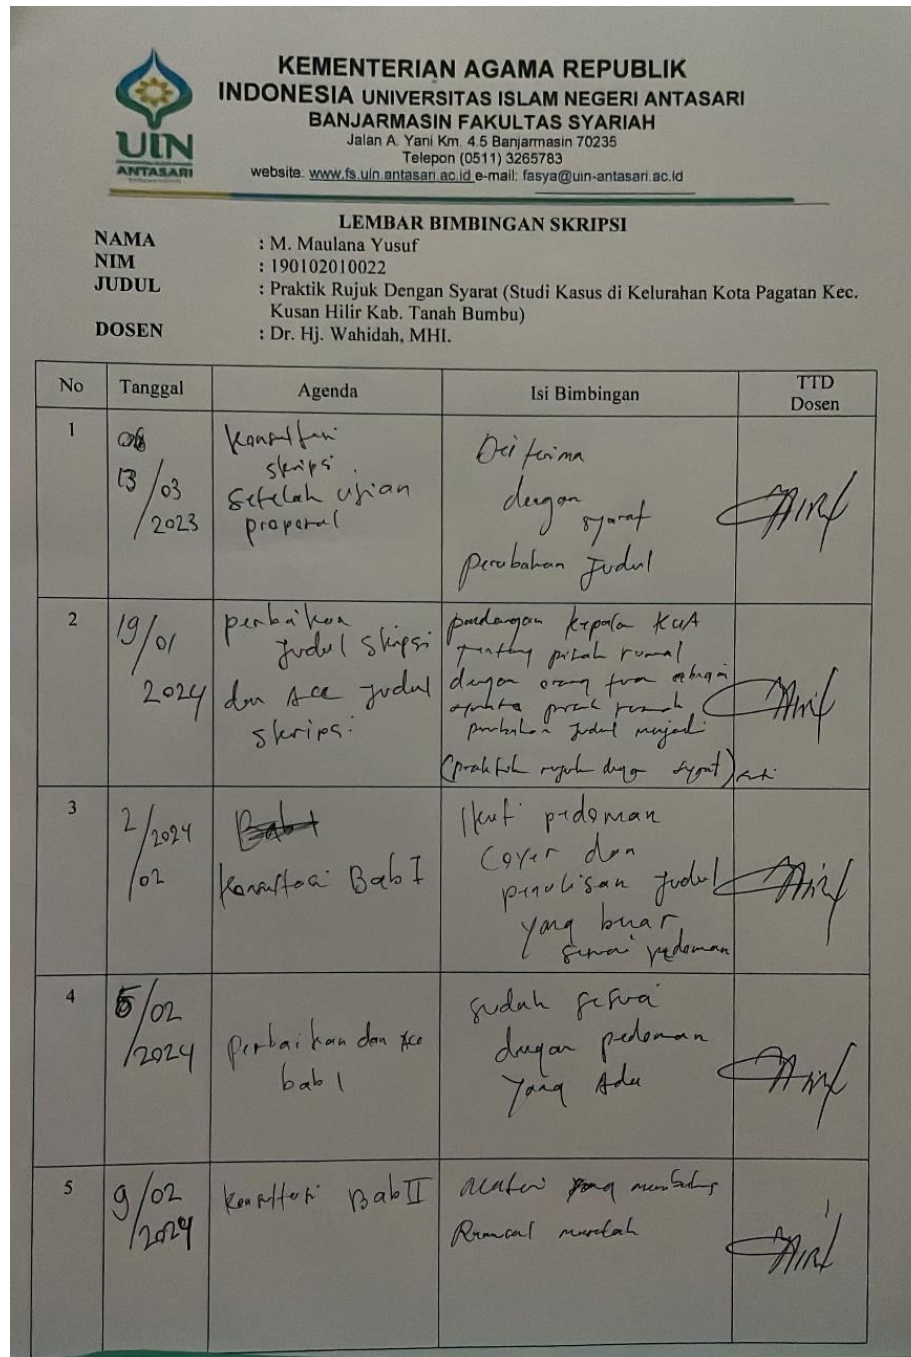 KEMENTERIAN AGAMA REPUBLIK
INDONESIA UNIVERSITAS ISLAM NEGERI ANTASARI
BANJARMASIN FAKULTAS SYARIAH
Jalan A. Yani Km. 4.5 Banjarmasin 70235
Telepon (0511) 3265783
website: www.fs.uin.antasari.ac.id e-mail: fasya@uin-antasari.ac.id
UIN
ANTASARI
LEMBAR BIMBINGAN SKRIPSI
NAMA : M. Maulana Yusuf
NIM : 190102010022
JUDUL : Praktik Rujuk Dengan Syarat (Studi Kasus di Kelurahan Kota Pagatan Kec.
Kusan Hilir Kab. Tanah Bumbu)
DOSEN : Dr. Hj. Wahidah, MHI.
No Tanggal Agenda Isi Bimbingan TTD
Dosen
1
13/03
/2023
Konsultasi
skripsi.
Setelah ujian
proposal
Diterima
dengan
syarat
perubahan Judul
2
19/01
2024
perbaikan
Judul skripsi
dan Acc Judul
skripsi.
pandangan kepala KUA
tentang pisah rumah
dengan orang tua sebagai
pisah rumah
perubahan Judul menjadi
(praktik rujuk dengan syarat)
3
2/2024
/02
Konsultasi Bab I
Ikuti pedoman
Cover dan
penulisan Judul
yang benar
sesuai pedoman
4
5/02
/2024
perbaikan dan Acc
bab 1
sudah sesuai
dengan pedoman
yang Ada
5
9/02
/2024
Konsultasi Bab II
materi yang
Rumusal